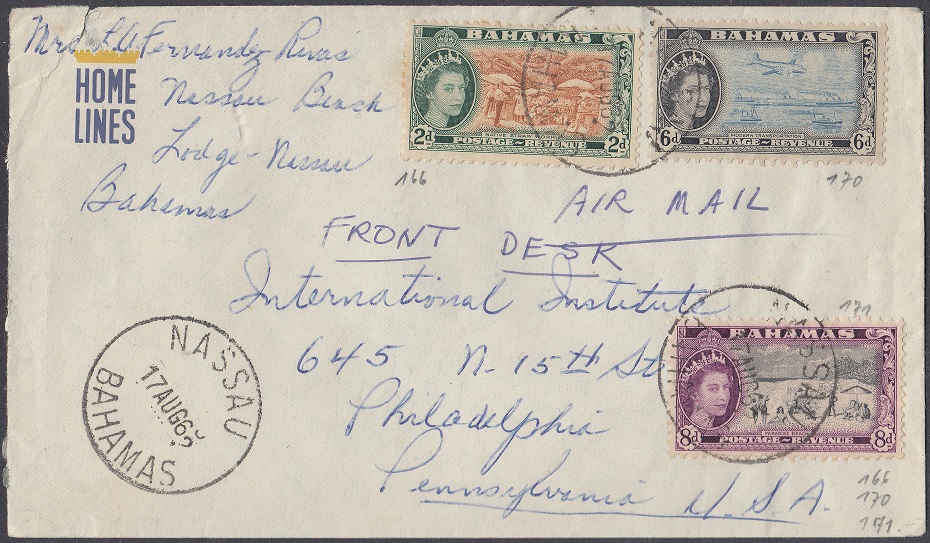 Mrs L.A. Fernandez Rivas
HOME
LINES
Nassau Beach
Lodge - Nassau
Bahamas
BAHAMAS
2d NATIVE STRAW 2d
POSTAGE~REVENUE
166
BAHAMAS
6d MODERN TRANSPORTATION 6d
POSTAGE~REVENUE
170
AIR MAIL
FRONT DESK
International Institute
645 N. 15TH St
Philadelphia
Pennsylvania U.S.A.
NASSAU
17 AUG 62
BAHAMAS
171
BAHAMAS
8d PARADISE BEACH 8d
POSTAGE~REVENUE
NASSAU
166
170
171.